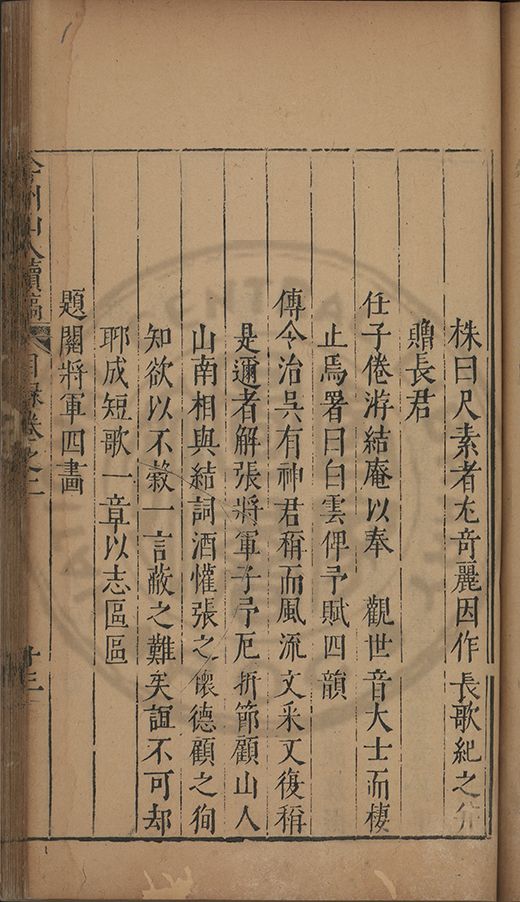 株曰尺素者尤奇麗因作長歌紀之并
贈長君
任子倦游結庵以奉　觀世音大士而棲
止焉署曰白雲俾予賦四韻
傅令治吳有神君稱而風流文采又復稱
是邇者解張將軍子予厄折節顧山人
山南相與結詞酒懽張之懷德顧之徇
知欲以不穀一言蔽之難矣誼不可却
耶成短歌一章以志區區
題關將軍四畫
弇州山人續稿　目錄卷之二　十三